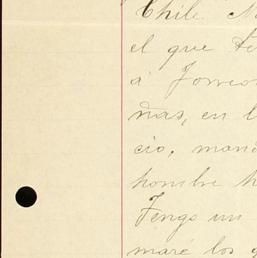 Chile
el que
á Torreo
ñas, en l
cio, mand
hombre h
Tengo un
maré los g